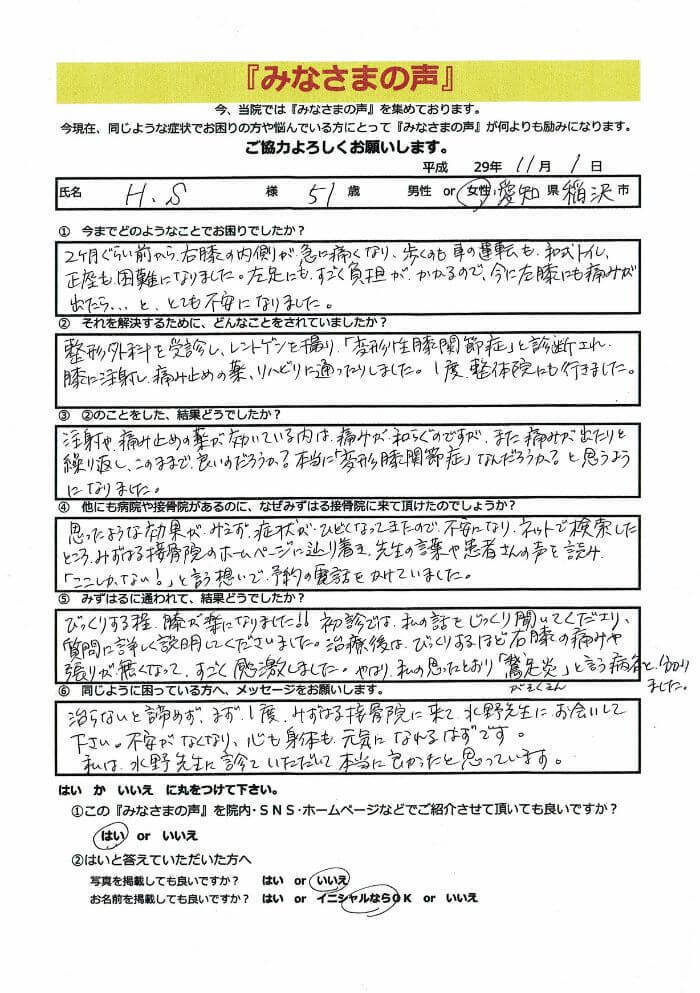 『みなさまの声』
今、当院では『みなさまの声』を集めております。
今現在、同じような症状でお困りの方や悩んでいる方にとって『みなさまの声』が何よりも励みになります。
ご協力よろしくお願いします。
平成 29年 11月 1日
氏名 H.S 様 51歳 男性 or 女性 愛知県 稲沢市
① 今までどのようなことでお困りでしたか？
2ヶ月ぐらい前から、右膝の内側が、急に痛くなり、歩くのも、車の運転も、和式トイレ、
正座も、困難になりました。左足にも、すごく負担が、かかるので、今に左膝にも痛みが
出たら...と、とても不安になりました。
② それを解決するために、どんなことをされていましたか？
整形外科を受診し、レントゲンを撮り、「変形性膝関節症」と診断され、
膝に注射し、痛み止めの薬、リハビリに通ったりしました。1度、整体院にも行きました。
③ ②のことをした、結果どうでしたか？
注射や、痛み止めの薬が効いている内は、痛みが、和らぐのですが、また痛みが出たりと
繰り返し、このままで、良いのだろうか？本当に「変形膝関節症」なんだろうか？と思うよう
になりました。
④ 他にも病院や接骨院があるのに、なぜみずはる接骨院に来て頂けたのでしょうか？
思ったような効果が、みえず、症状が、ひどくなってきたので、不安になり、ネットで検索した
ところ、みずはる接骨院のホームページに辿り着き、先生の言葉や患者さんの声を読み、
「ここしかない！」と言う想いで、予約の電話をかけていました。
⑤ みずはるに通われて、結果どうでしたか？
びっくりする程、膝が楽になりました!! 初診では、私の話をじっくり聞いてくださり、
質問に詳しく説明してくださいました。治療後は、びっくりするほど右膝の痛みや
張りが無くなって、すごく感激しました。やはり、私の思ったとおり「鵞足炎」と言う病名と、分かり
がそくえん
ました。
⑥ 同じように困っている方へ、メッセージをお願いします。
治らないと諦めず、まず、1度、みずはる接骨院に来て、水野先生にお会いして
下さい。不安がなくなり、心も身体も、元気になれるはずです。
私は、水野先生に診ていただいて本当に良かったと思っています。
はい か いいえ に丸をつけて下さい。
①この『みなさまの声』を院内・SNS・ホームページなどでご紹介させて頂いても良いですか？
はい or いいえ
②はいと答えていただいた方へ
写真を掲載しても良いですか？ はい or いいえ
お名前を掲載しても良いですか？ はい or イニシャルならOK or いいえ